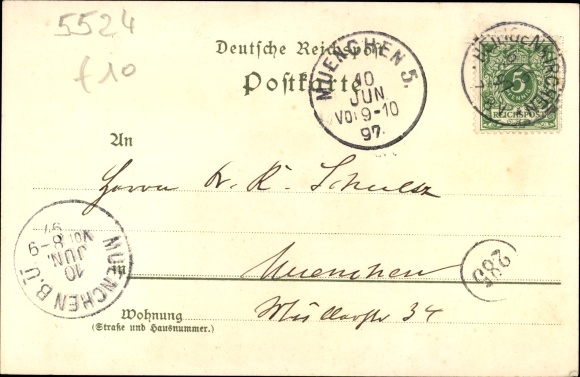 5524
f10
Deutsche Reichspost
Postkarte
MUENCHEN 5.
10
JUN
Vor 9-10
97.
5
REICHSPOST
An
Herrn Dr. K. Schulz
MUENCHEN B.Ü
10
JUN.
Vor 8-9
97
in
Muenchen
285
Wohnung
(Straße und Hausnummer.)
Müllerstr 34